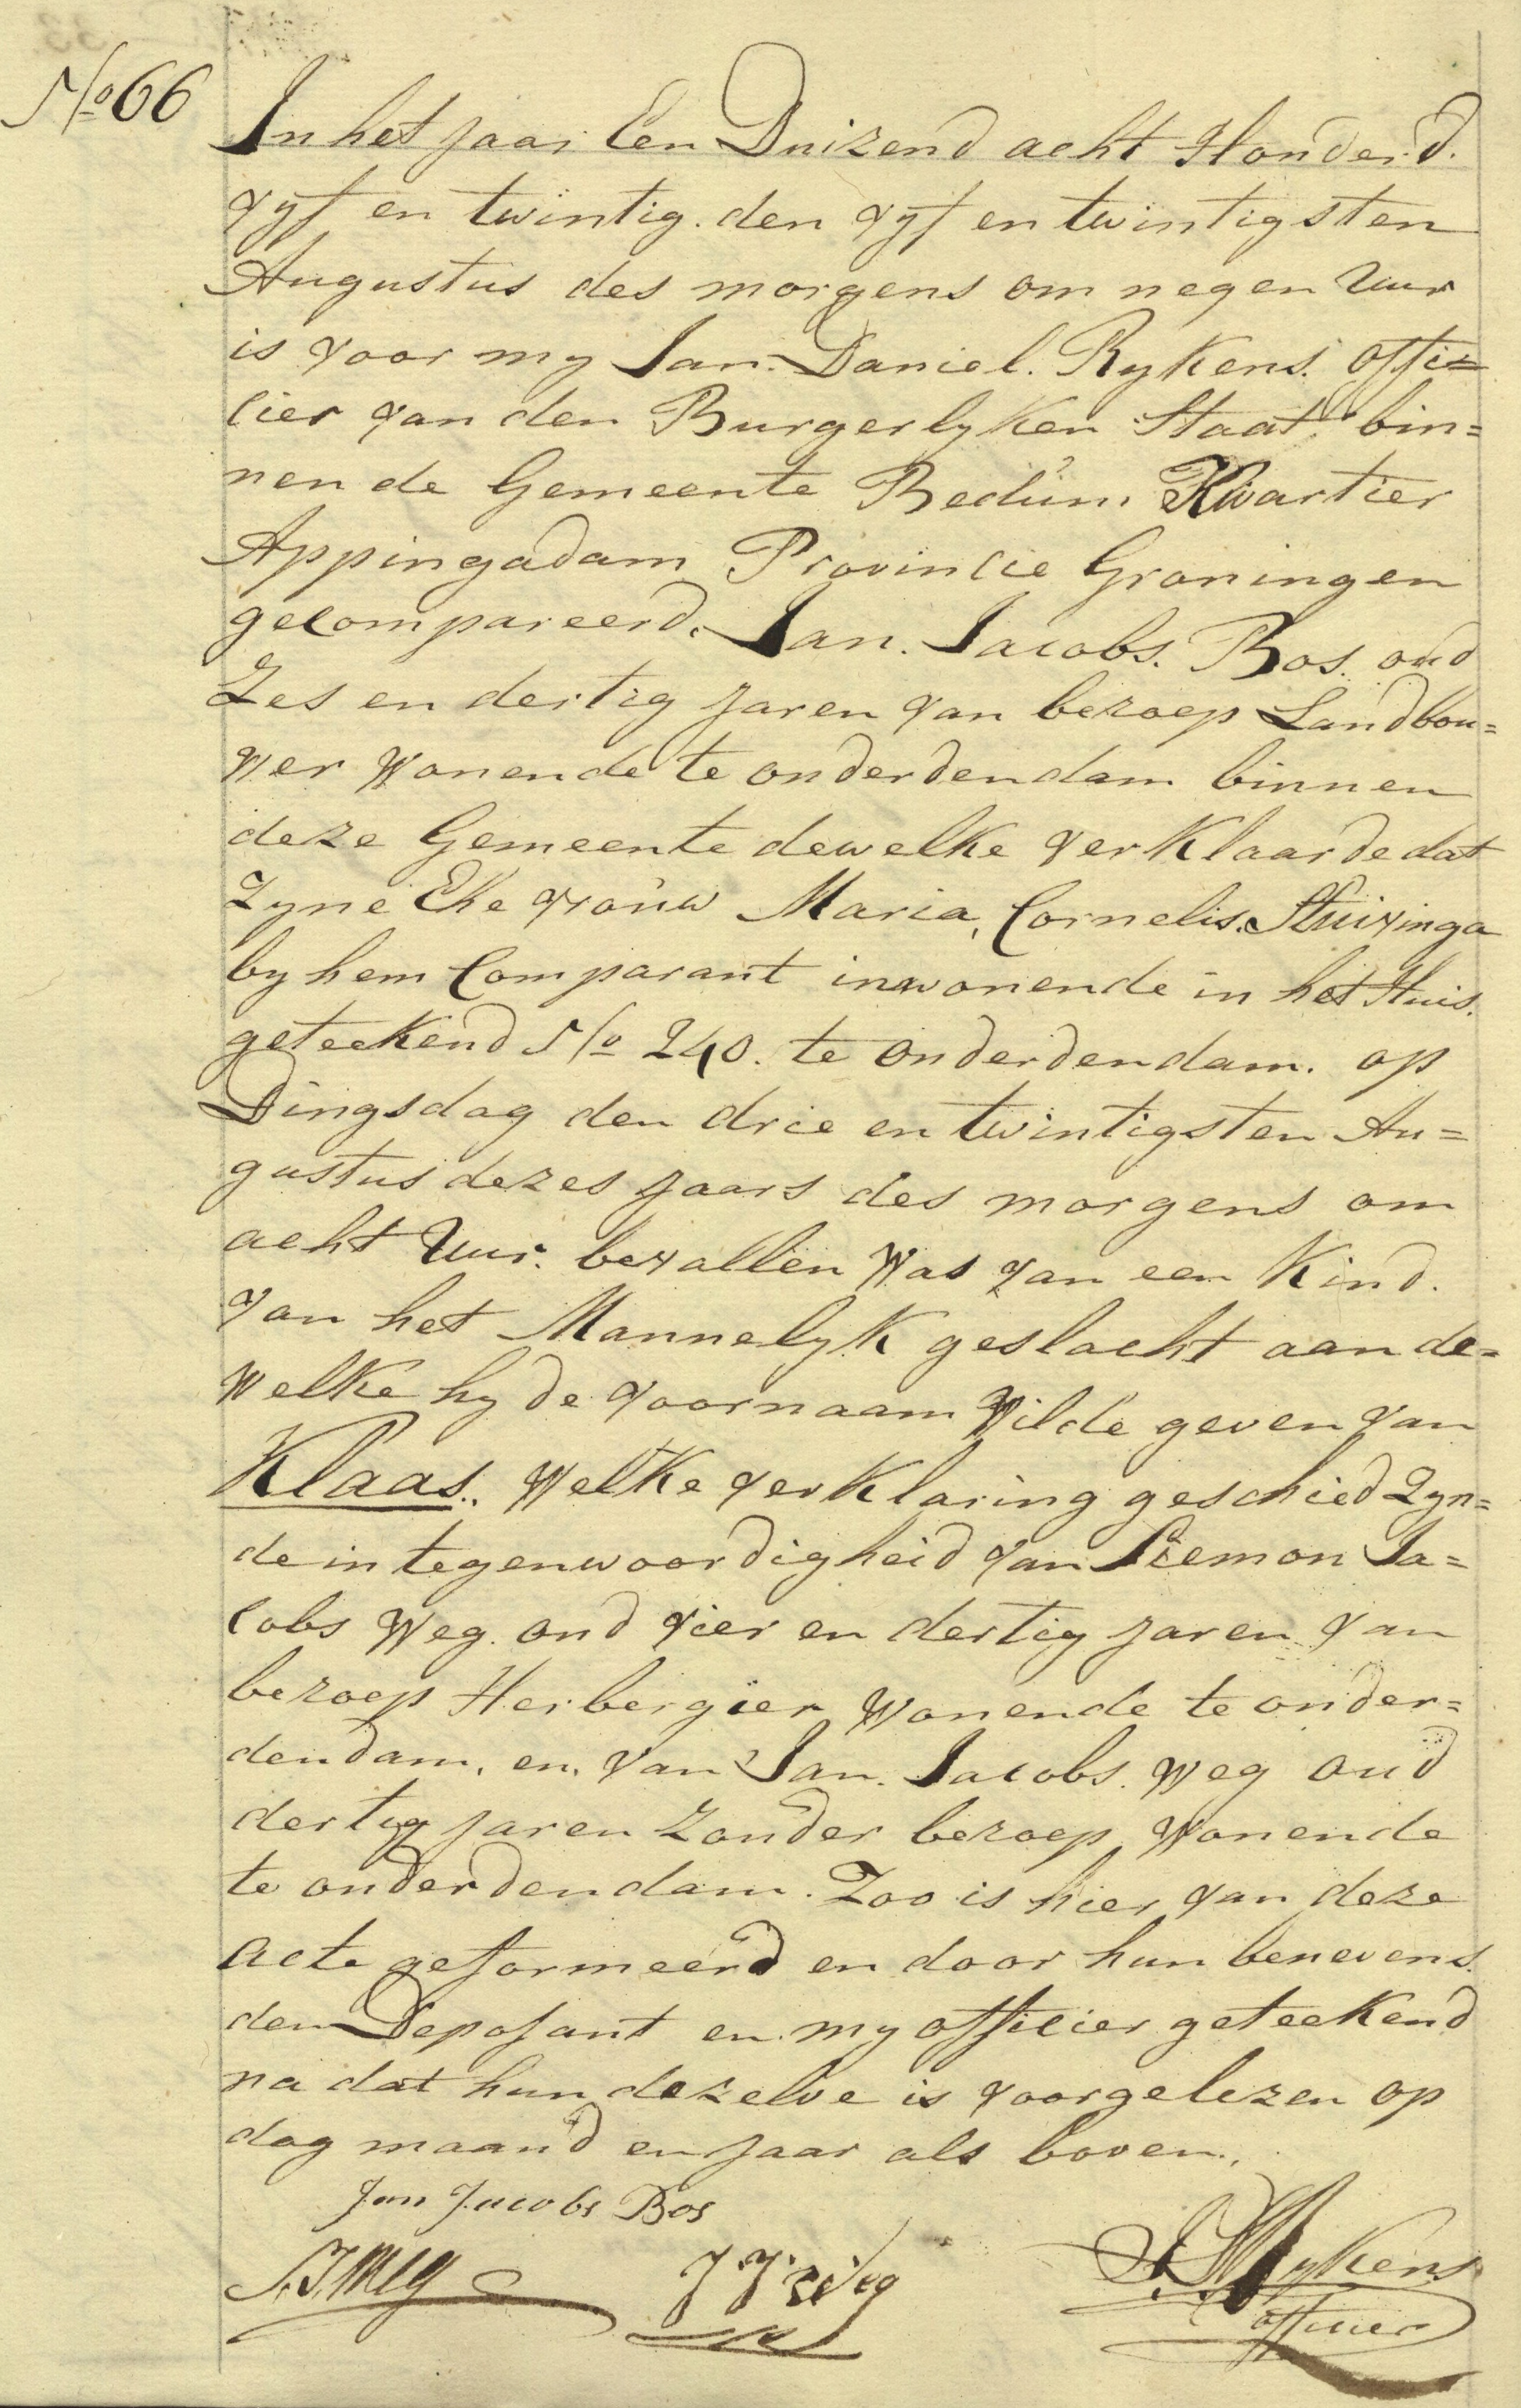 No 66
In het jaar Een Duizend acht Honderd.
vyf en twintig. den vyf en twintigsten
Augustus des morgens om negen Uur
is voor my Jan. Daniel. Rykens. offi=
cier van den Burgerlyken Staat bin=
nen de Gemeente Bedum Kwartier
Appingadam Provincie Groningen
gecompareerd. Jan. Jacobs. Bos. oud
Zes en dertig jaren van beroep Landbou=
wer Wonende te onderdendam binnen
deze Gemeente dewelke verklaarde dat
Zyne Ehe vrouw Maria, Cornelis. Huizinga
by hem Comparant inwonende in het Huis.
geteekend No 240. te onderdendam. op
Dingsdag den drie en twintigsten Au=
gustus dezes jaars des morgens om
acht Uur. bevallen Was van een Kind.
van het Mannelyk geslacht aan de=
Welke hy de voornaam Wilde geven van
Klaas. Welke verklaring geschied Zyn=
de in tegenwoordigheid van Siemon Ja=
cobs Weg. oud vier en dertig jaren van
beroep Herbergier Wonende te onder=
dendam, en. van Jan. Jacobs. Weg oud
dertig jaren Zonder beroep Wonende
te onderdendam. Zoo is hier van deze
acte geformeerd en door hun benevens.
den Deposant en my officier geteekend
na dat hun dezelve is voorgelezen op
dag maand en jaar als boven.
Jan Jacobs Bos
S. J. Weg J J Weg J. D. Rykens
officier